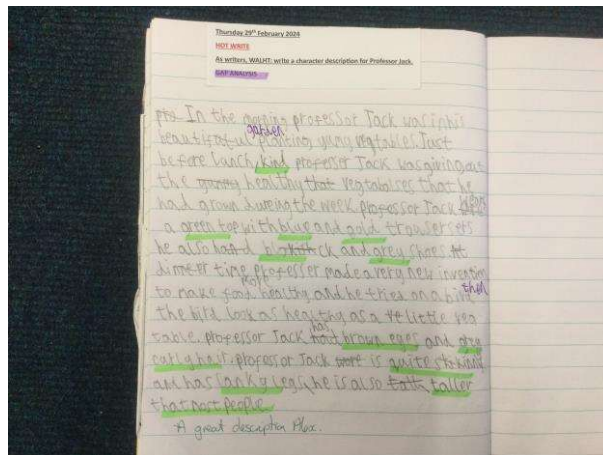 Thursday 29th February 2024
HOT WRITE
As writers, WALHT: write a character description for Professor Jack.
GAP ANALYSIS
In the morning professor Jack was in his
garden
planting yumy vegtables. Just
before lunch, kind professor Jack was giving out
the healthy vegtabalses that he
had grown dureing the week. professor Jack wears
a green top with blue and gold trouserses
he also and grey shoes. At
time professer made a very new invention
more then
to make food healthy and he tries on a bird
the bird look as healthy as a little veg
has
table. professor Jack brown eyes and grey
curly hair. professor Jack is quite skinny
and has lanky legs, he is also taller
that most people.
A great description Max.